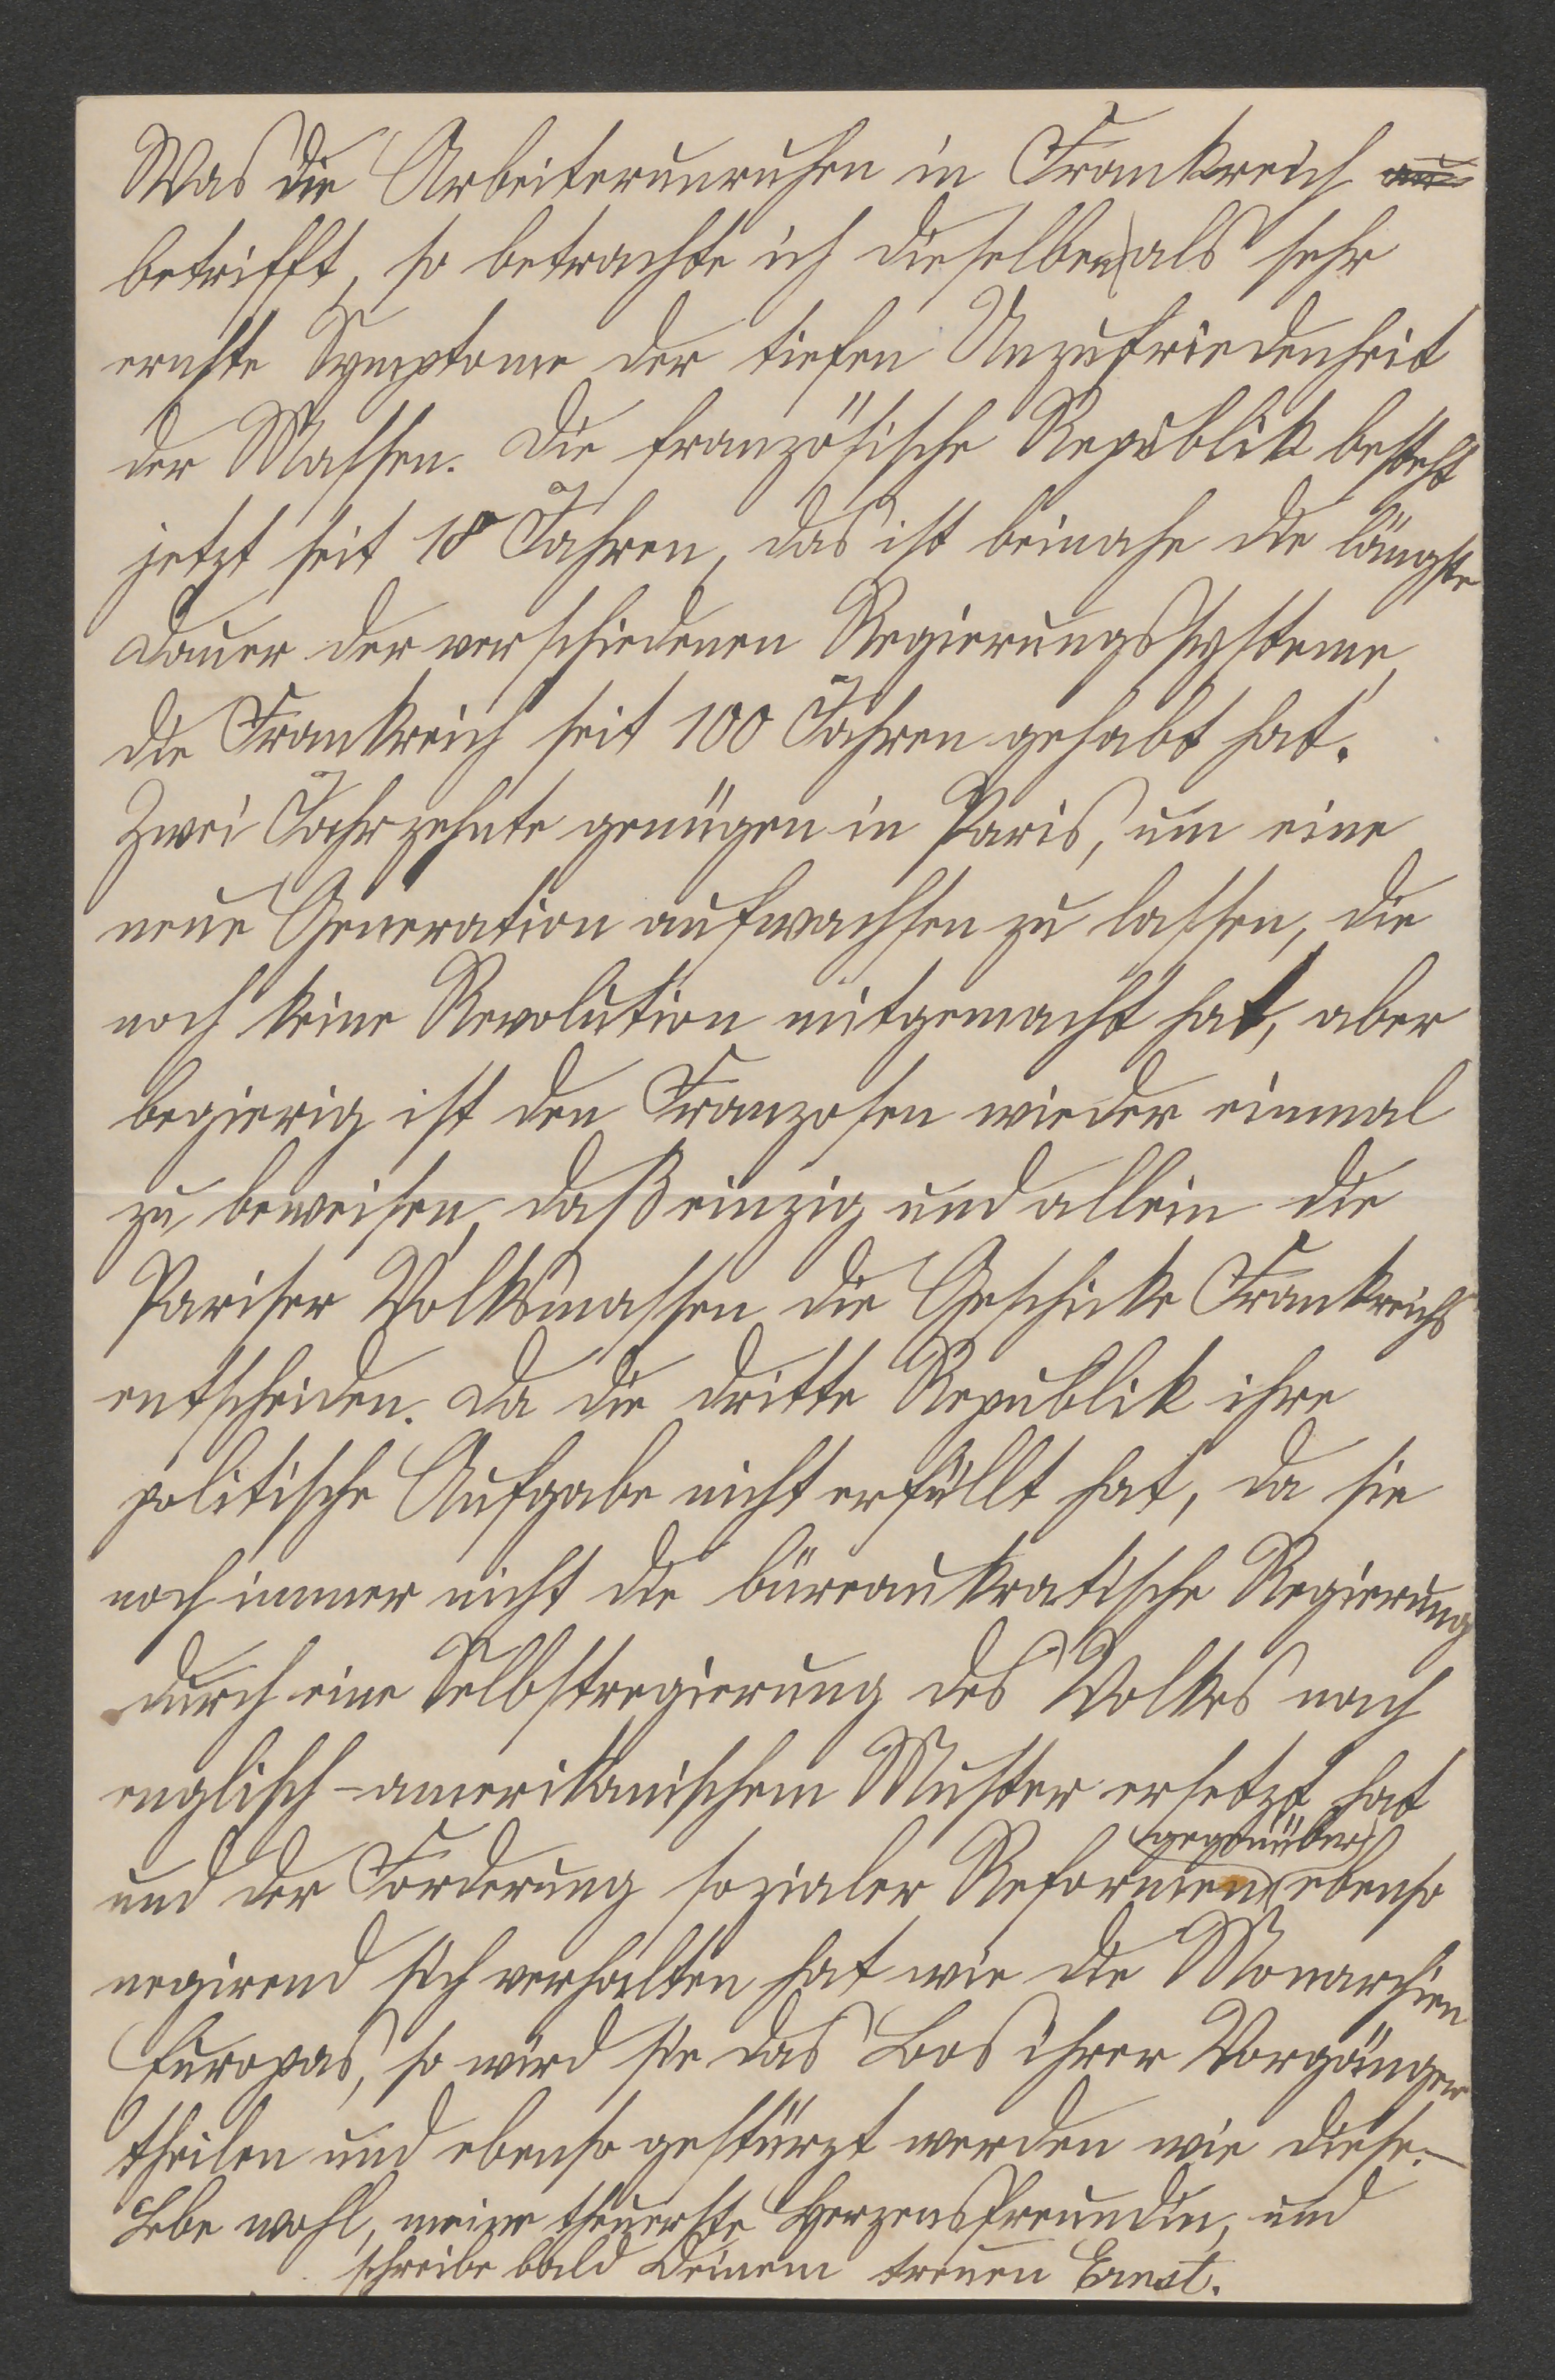 Was die Arbeiterunruhen in Frankreich
betrifft, so betrachte ich dieselben als sehr
ernste Symptome der tiefen Unzufriedenheit
der Massen. Die französische Republik besteht
jetzt seit 18 Jahren, das ist beinahe die längste
Dauer der verschiedenen Regierungssysteme,
die Frankreich seit 100 Jahren gehabt hat.
Zwei Jahrzehnte genügen in Paris, um eine
neue Generation aufwachsen zu lassen, die
noch keine Revolution mitgemacht hat, aber
begierig ist den Franzosen wieder einmal
zu beweisen, daß einzig und allein die
Pariser Volksmassen die Geschicke Frankreichs
entscheiden. Da die dritte Republik ihre
politische Aufgabe nicht erfüllt hat, da sie
noch immer nicht die büreaukratische Regierung
durch eine Selbstregierung des Volkes nach
englisch-amerikanischem Muster ersetzt hat
gegenüber
und der Forderung sozialer Reformen ebenso
negirend sich verhalten hat wie die Monarchien
Europas, so wird sie das Loos ihrer Vorgänger
theilen und ebenso gestürzt werden wie diese.–
Lebe wohl, meine theuerste Herzensfreundin, und
schreibe bald Deinem treuen Ernst.